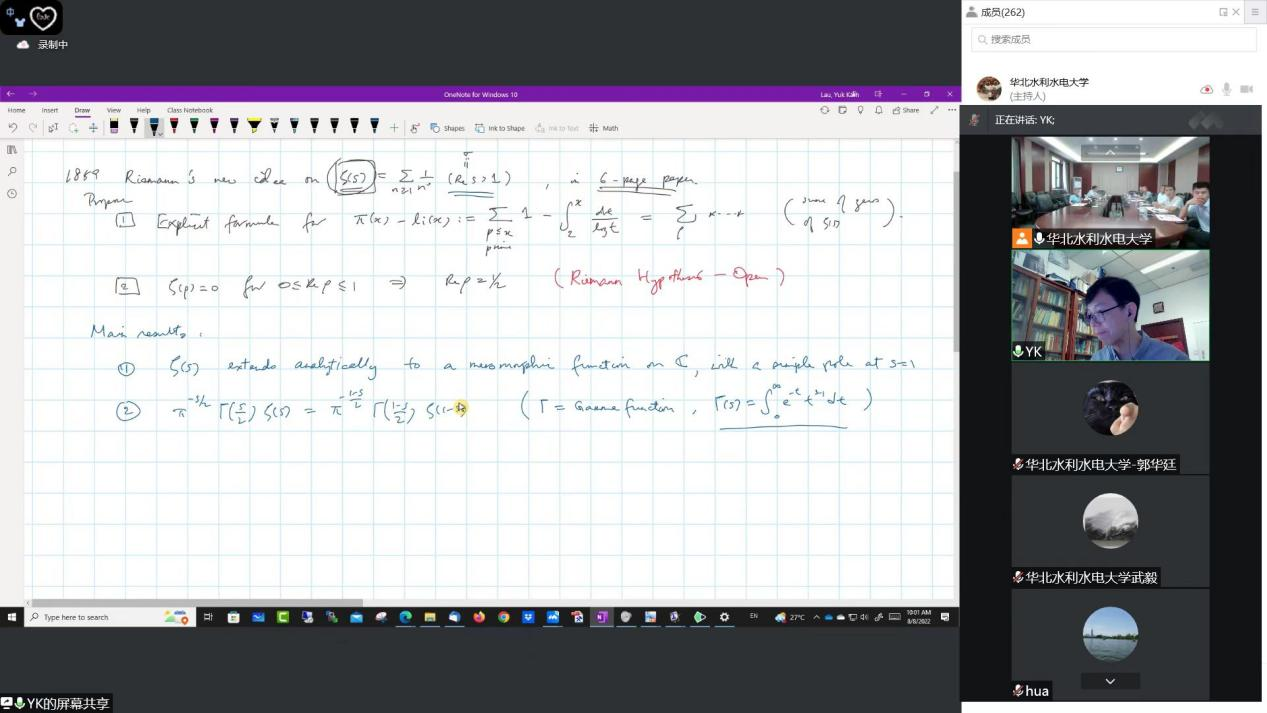 中
录制中
OneNote for Windows 10
Lau, Yuk Kam
Home Insert Draw View Help Class Notebook
Share
Shapes Ink to Shape Ink to Text Math
σ
1859 Riemann's new idea on ζ(s) = Σ_{n≥1} 1/n^s (Re s > 1), in 6-page paper.
Propose
1 Explicit formula for π(x) - li(x) := Σ_{p≤x prime} 1 - ∫_2^x dt/log t = Σ_ρ (sum of zeros of ζ(s)).
2 ζ(ρ)=0 for 0≤Re ρ≤1 ⇒ Re ρ = 1/2 (Riemann Hypothesis - Open)
Main results.
① ζ(s) extends analytically to a meromorphic function on ℂ, with a simple pole at s=1
② π^{-s/2} Γ(s/2) ζ(s) = π^{-(1-s)/2} Γ((1-s)/2) ζ(1-s) (Γ = Gamma function, Γ(s) = ∫_0^∞ e^{-t} t^{s-1} dt)
Type here to search
EN
27°C
10:01 AM
8/8/2022
YK的屏幕共享
成员(262)
搜索成员
华北水利水电大学
(主持人)
正在讲话: YK;
华北水利水电大学
YK
华北水利水电大学-郭华廷
华北水利水电大学武毅
hua